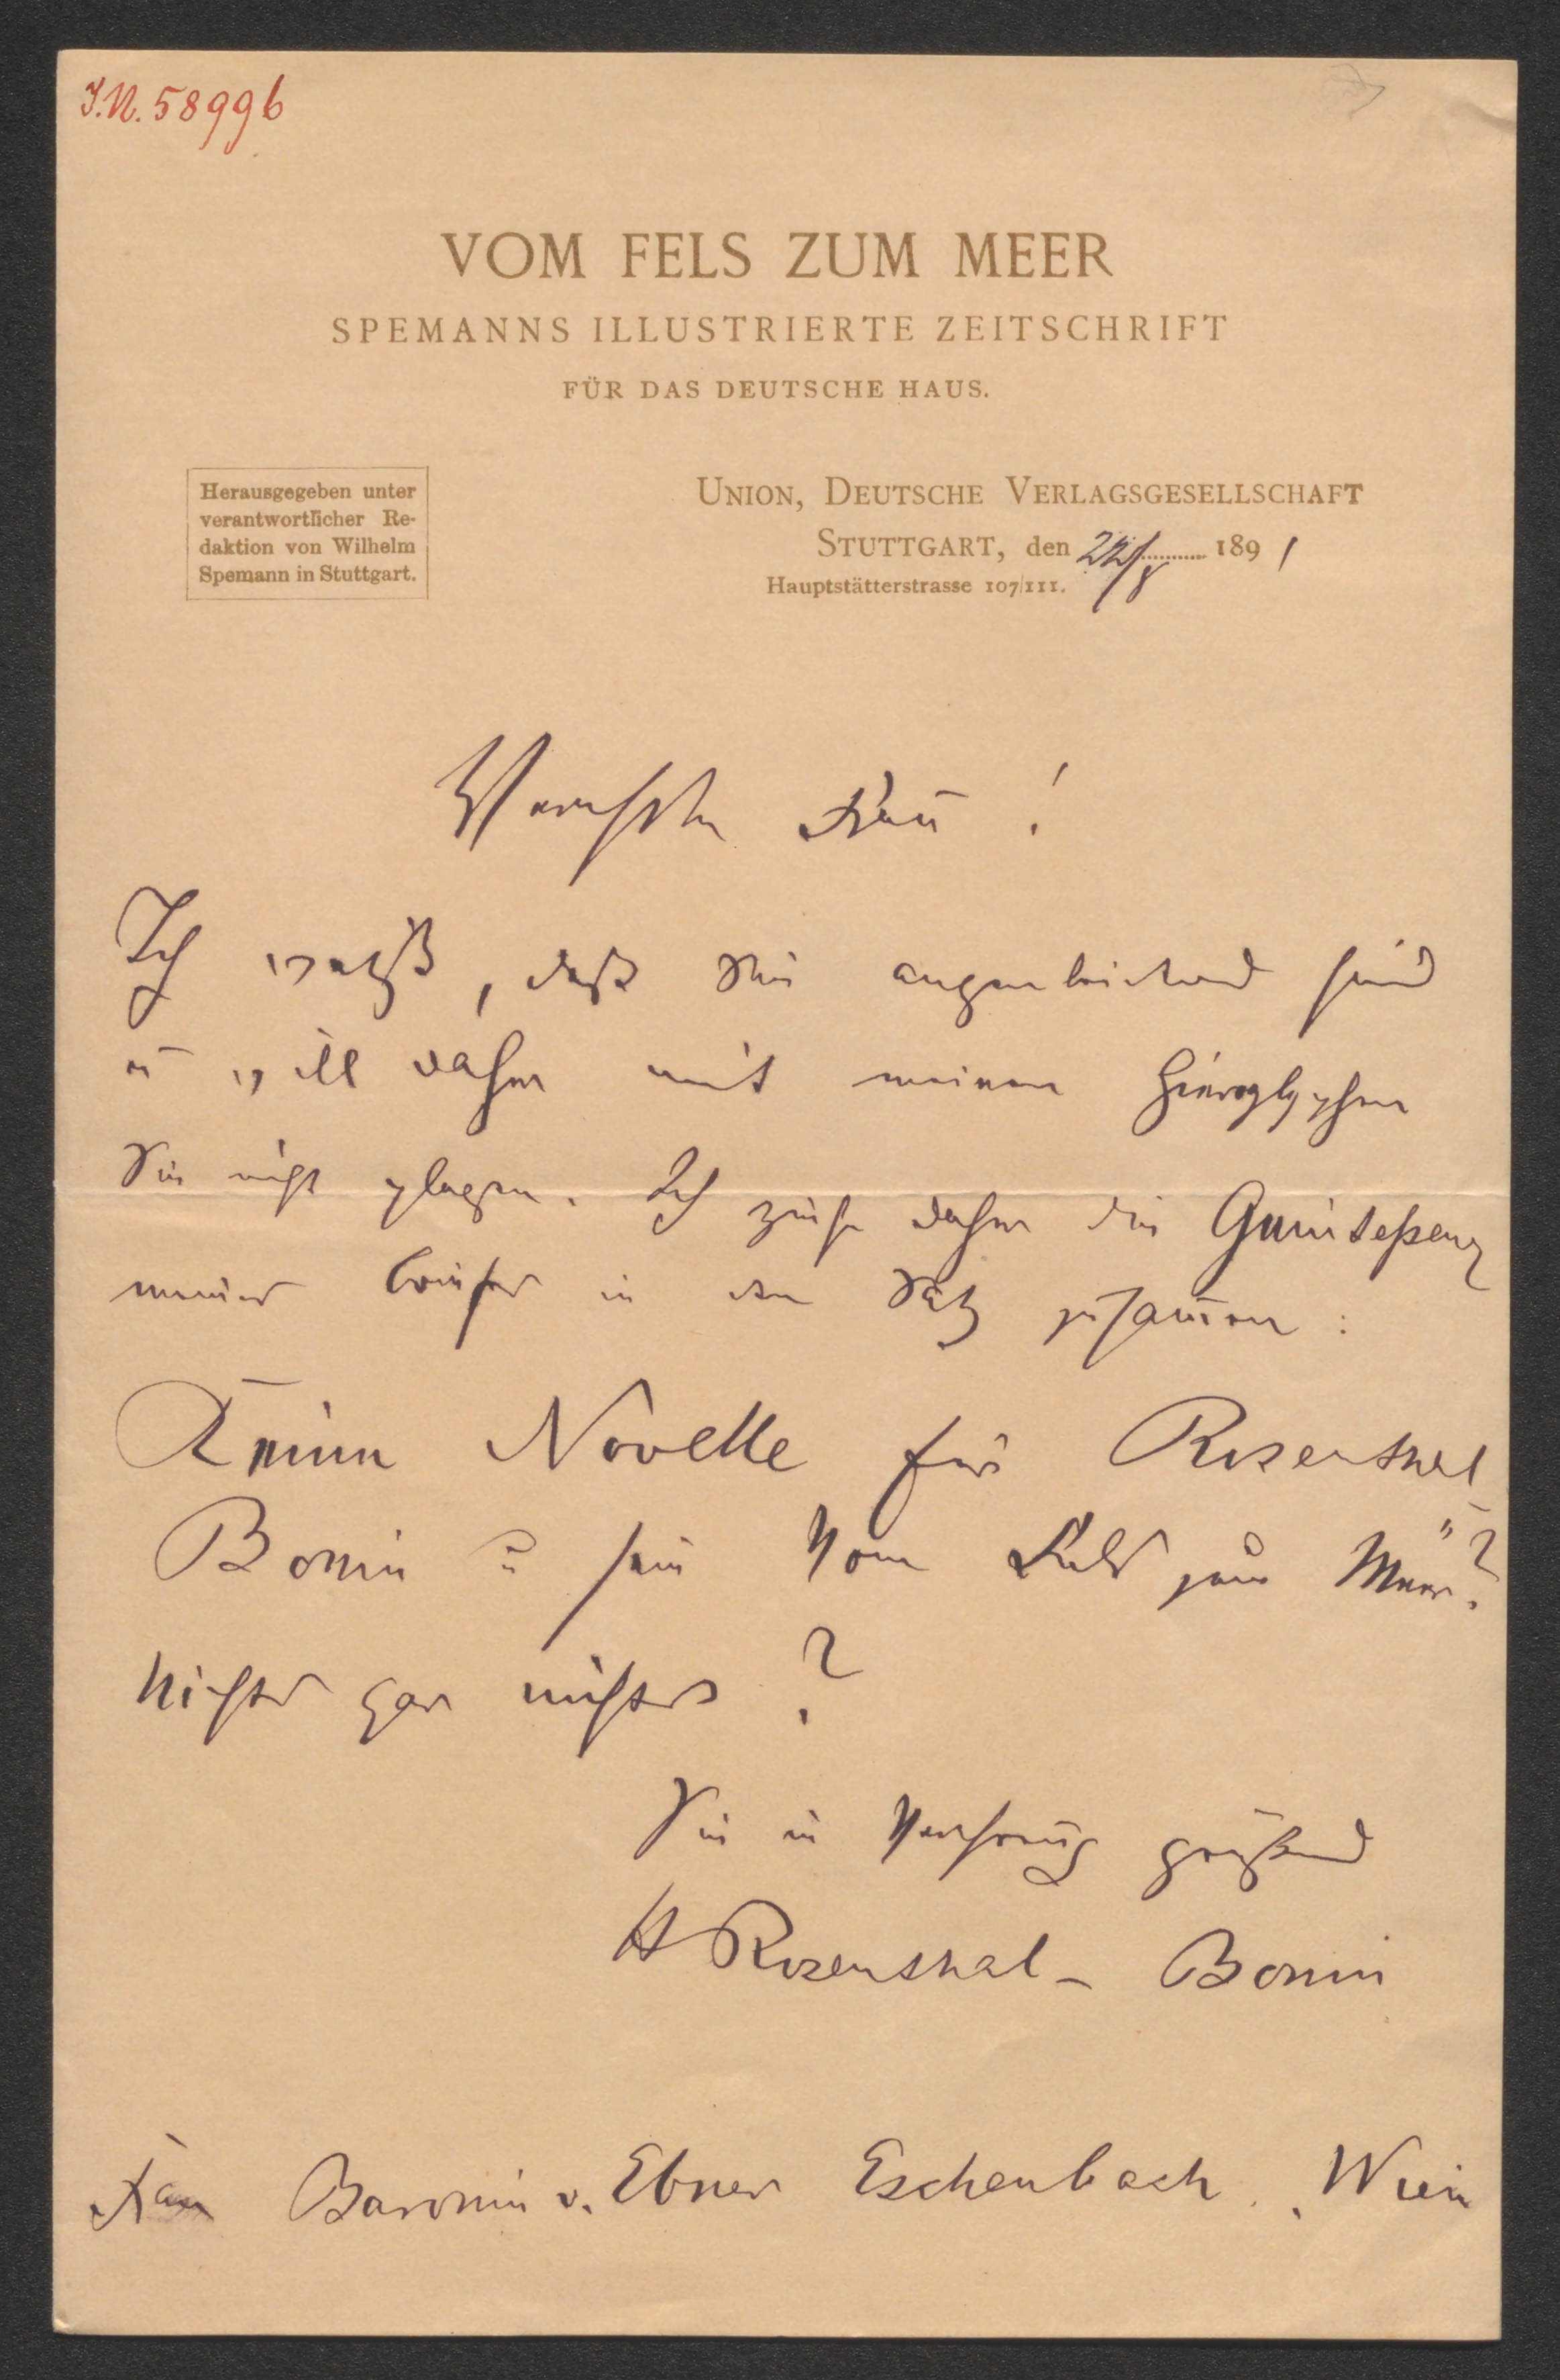 I.N. 58996
VOM FELS ZUM MEER
SPEMANNS ILLUSTRIERTE ZEITSCHRIFT
FÜR DAS DEUTSCHE HAUS.
Herausgegeben unter
verantwortlicher Re-
daktion von Wilhelm
Spemann in Stuttgart.
UNION, DEUTSCHE VERLAGSGESELLSCHAFT
STUTTGART, den 22/8 1891
Hauptstätterstrasse 107/III.
Verehrte Frau!
Ich weiß, daß Sie augenleidend sind
u will daher mit meinen Hieroglyphen
Sie nicht plagen. Ich ziehe daher die Quintessenz
meines Briefes in den Satz zusam̄en:
Keine Novelle für Rosenthal
Bonin u sein Vom Fels zum Meer"?
Nichts gar nichts?
Sie in Verehrung grüßend
H Rosenthal-Bonin
Frau Baronin v. Ebner Eschenbach, Wien